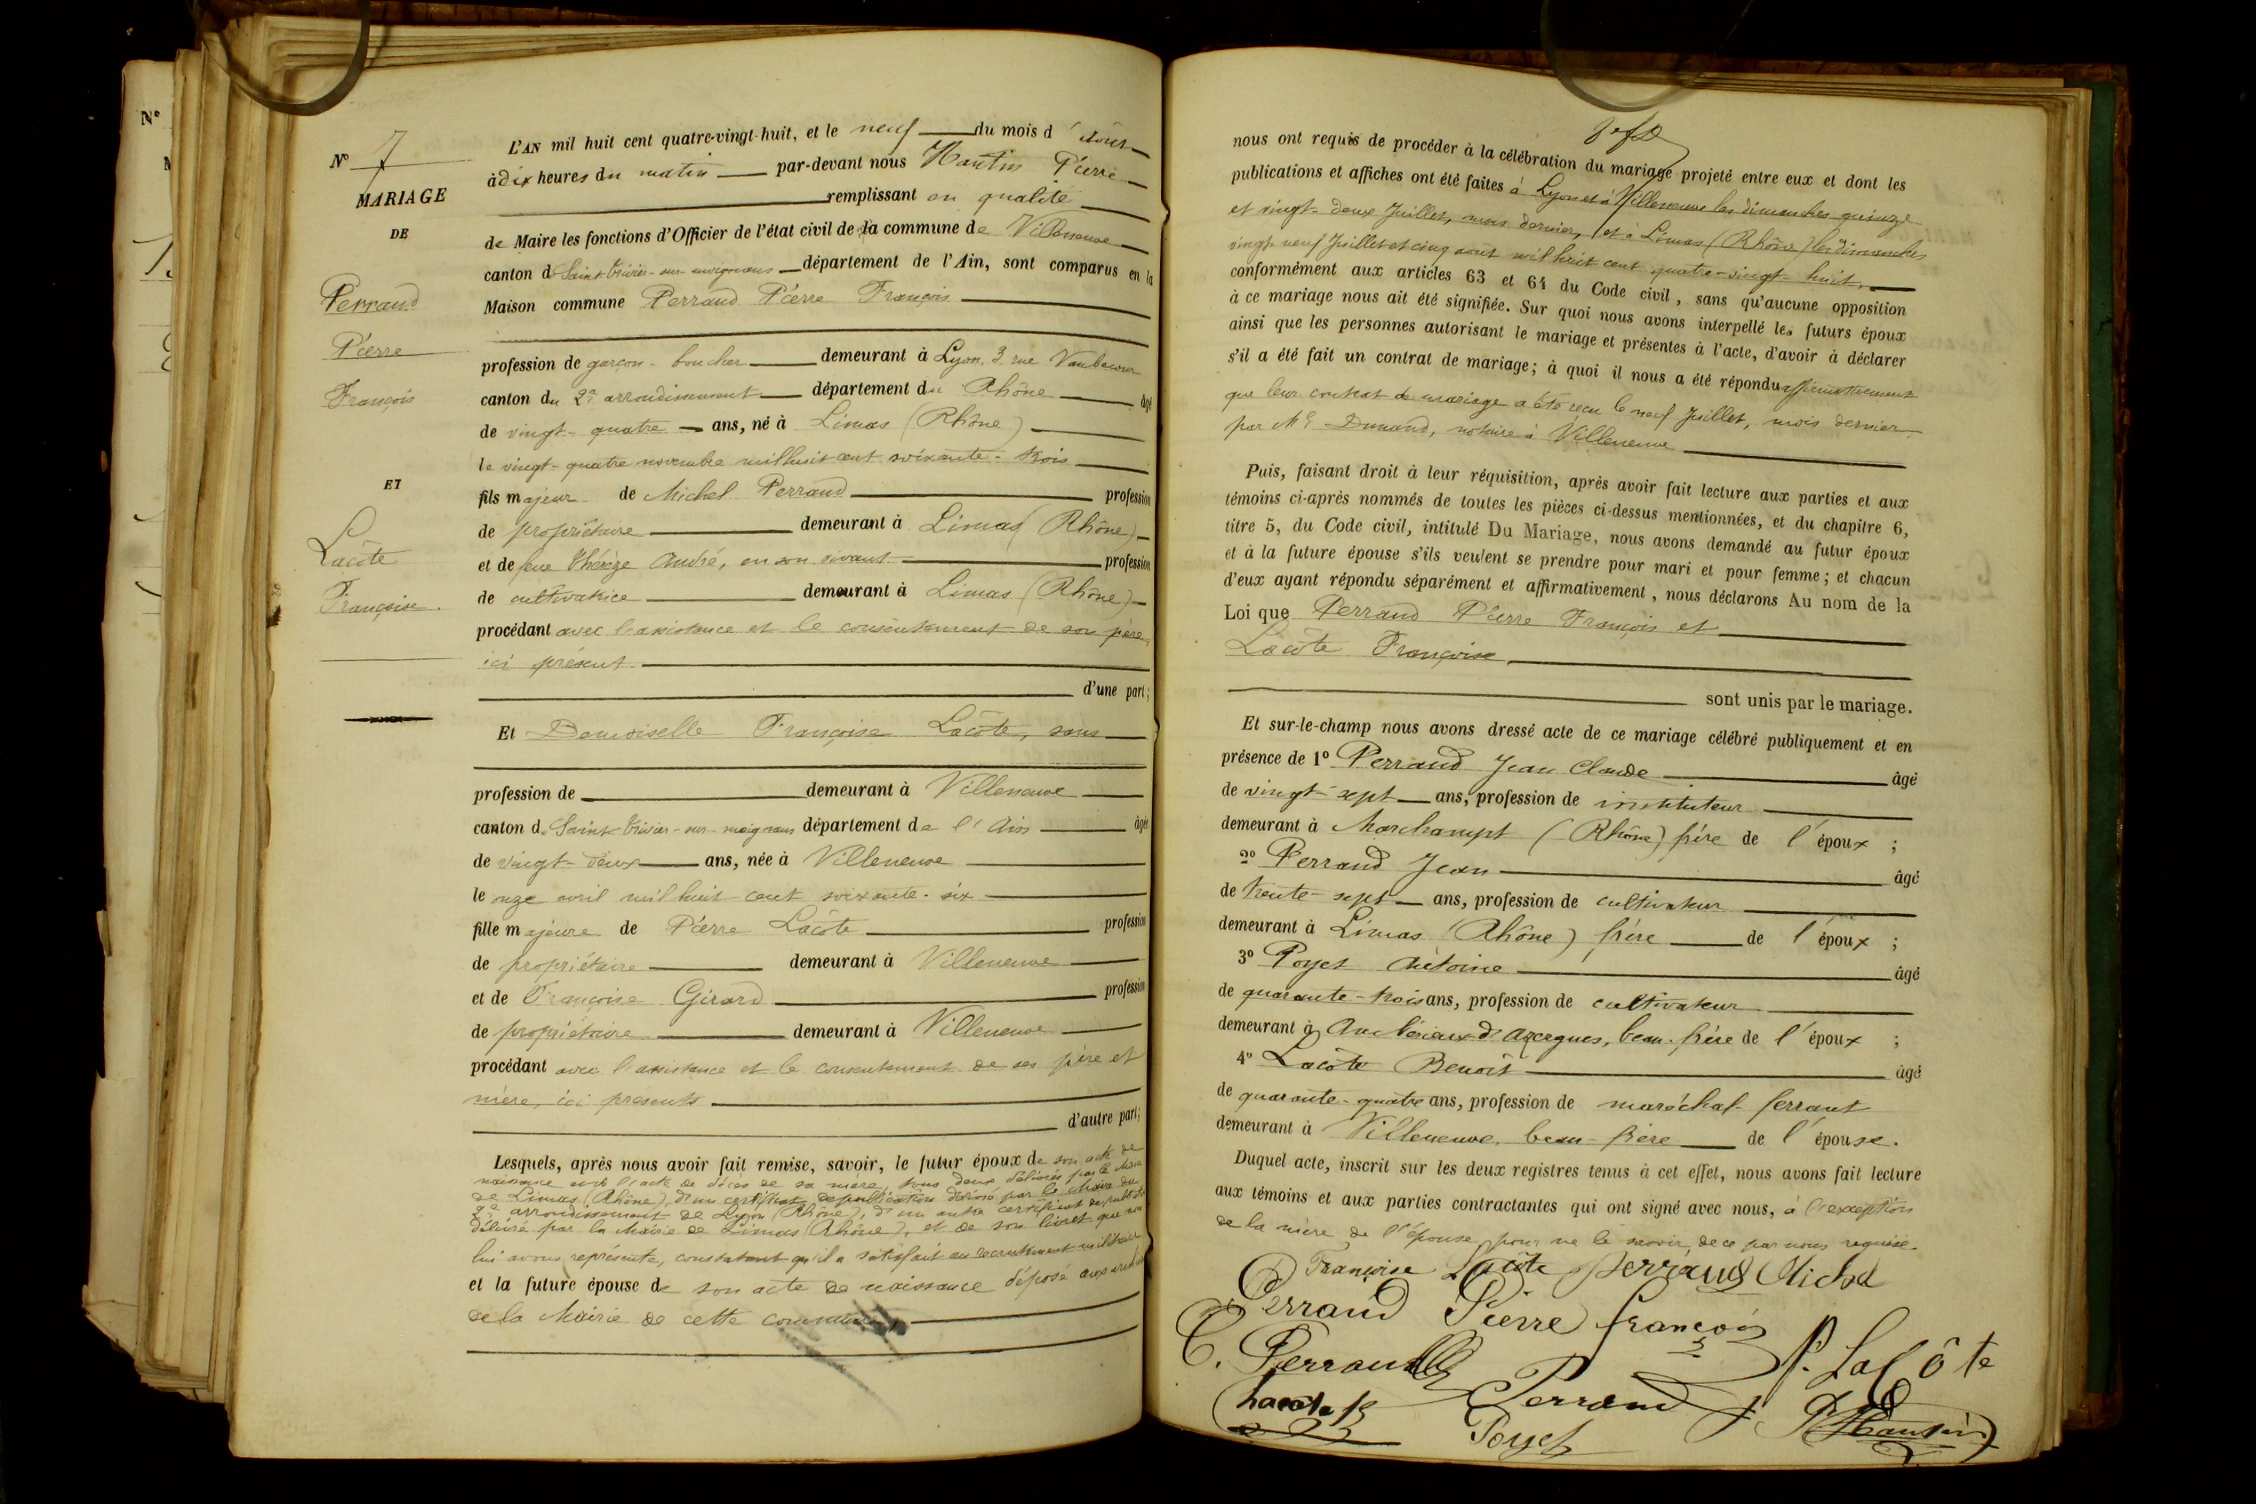 N°
N° 7
MARIAGE
DE
Perraud
Pierre
François
ET
Lacôte
Françoise.
L'AN mil huit cent quatre-vingt-huit, et le neuf du mois d'Août
à dix heures du matin par-devant nous Pierre
remplissant en qualité
de Maire les fonctions d'Officier de l'état civil de la commune de Villeneuve
canton de Saint Trivier-sur- département de l'Ain, sont comparus en la
Maison commune Perraud Pierre François
profession de garçon-boucher demeurant à Lyon, 3 rue Vaubecour
canton du 2e arrondissement département du Rhône âgé
de vingt-quatre ans, né à Limas (Rhône)
le vingt-quatre novembre mil huit cent soixante-trois
fils majeur de Michel Perraud profession
de propriétaire demeurant à Limas (Rhône)
et de feue Thérèze André, en son vivant profession
de cultivatrice demeurant à Limas (Rhône)
procédant avec l'assistance et le consentement de son père,
ici présent
d'une part;
Et Demoiselle Françoise Lacôte, sans
profession de demeurant à Villeneuve
canton de Saint Trivier-sur-moignans département de l'Ain âgée
de vingt-deux ans, née à Villeneuve
le onze avril mil huit cent soixante-six
fille majeure de Pierre Lacôte profession
de propriétaire demeurant à Villeneuve
et de Françoise Girard profession
de propriétaire demeurant à Villeneuve
procédant avec l'assistance et le consentement de ses père et
mère, ici presents
d'autre part;
Lesquels, après nous avoir fait remise, savoir, le futur époux de son acte de
naissance l'acte de décès de sa mère, tous deux délivrés par le Maire
de Limas (Rhône), d'un certificat de publication délivré par le Maire du
2e arrondissement de Lyon (Rhône), d'un autre certificat de
délivré par la Mairie de Limas (Rhône), et de son livret que
lui avons représenté, constatant qu'il a satisfait au recrutement militaire
et la future épouse de son acte de naissance déposé aux
de la Mairie de cette commune
nous ont requis de procéder à la célébration du mariage projeté entre eux et dont les
publications et affiches ont été faites à Lyon et à Villeneuve les dimanches quinze
et vingt-deux Juillet, mois dernier, et à Limas (Rhône) les dimanches
vingt-neuf Juillet et cinq août mil huit cent quatre-vingt-huit,
conformément aux articles 63 et 64 du Code civil, sans qu'aucune opposition
à ce mariage nous ait été signifiée. Sur quoi nous avons interpellé les futurs époux
ainsi que les personnes autorisant le mariage et présentes à l'acte, d'avoir à déclarer
s'il a été fait un contrat de mariage; à quoi il nous a été répondu affirmativement
que leur contrat de mariage a été reçu le neuf Juillet, mois dernier
par Me Dunand, notaire à Villeneuve
Puis, faisant droit à leur réquisition, après avoir fait lecture aux parties et aux
témoins ci-après nommés de toutes les pièces ci-dessus mentionnées, et du chapitre 6,
titre 5, du Code civil, intitulé Du Mariage, nous avons demandé au futur époux
et à la future épouse s'ils veulent se prendre pour mari et pour femme; et chacun
d'eux ayant répondu séparément et affirmativement, nous déclarons Au nom de la
Loi que Perraud Pierre François et
Lacôte Françoise
sont unis par le mariage.
Et sur-le-champ nous avons dressé acte de ce mariage célébré publiquement et en
présence de 1° Perraud Jean Claude âgé
de vingt-sept ans, profession de instituteur
demeurant à Marchampt (Rhône) frère de l'époux ;
2° Perraud Jean âgé
de trente-sept ans, profession de cultivateur
demeurant à Limas (Rhône) frère de l'époux ;
3° Poyet Antoine âgé
de quarante-trois ans, profession de cultivateur
demeurant à d'Azergues, beau-frère de l'époux ;
4° Lacôte Benoît âgé
de quarante-quatre ans, profession de maréchal-ferrant
demeurant à Villeneuve beau-frère de l'épouse.
Duquel acte, inscrit sur les deux registres tenus à cet effet, nous avons fait lecture
aux témoins et aux parties contractantes qui ont signé avec nous, à l'exception
de la mère de l'épouse pour ne le savoir, de ce par nous requise.
Françoise Lacôte Perraud Michel
Perraud Pierre françois
C. Perraud P. Lacôte
Lacote B Perraud J
Poyet